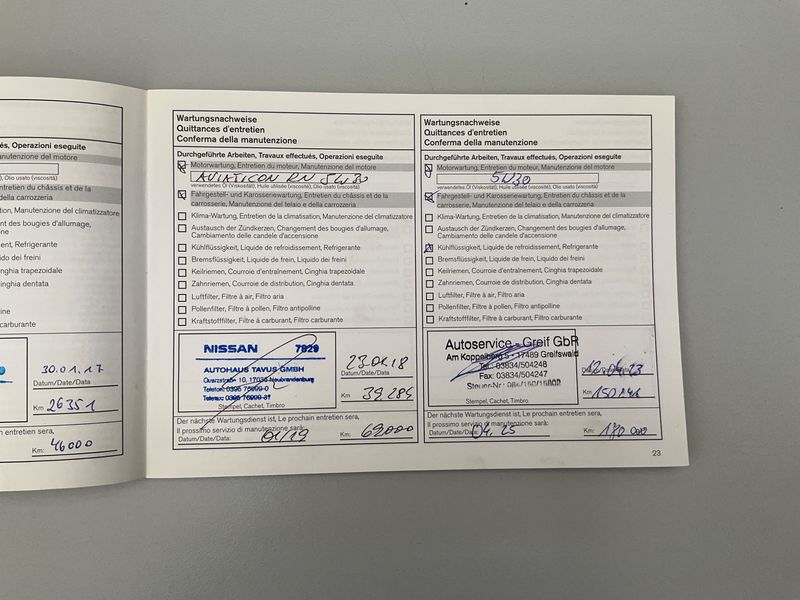 és, Operazioni eseguite
anutenzione del motore
), Olio usato (viscosità)
ntretien du châssis et de la
della carrozzeria
on, Manutenzione del climatizzatore
ment des bougies d'allumage,
ne
ent, Refrigerante
uido dei freini
inghia trapezoidale
nghia dentata
lline
carburante
30.01.17
Datum/Date/Data
Km 26351
n entretien sera,
Km: 46000
Wartungsnachweise
Quittances d'entretien
Conferma della manutenzione
Durchgeführte Arbeiten, Travaux effectués, Operazioni eseguite
Motorwartung, Entretien du moteur, Manutenzione del motore
AVIATICON RN 5W30
verwendetes Öl (Viskosität), Huile utilisée (viscosité), Olio usato (viscosità)
Fahrgestell- und Karosseriewartung, Entretien du châssis et de la
carrosserie, Manutenzione del telaio e della carrozzeria
Klima-Wartung, Entretien de la climatisation, Manutenzione del climatizzatore
Austausch der Zündkerzen, Changement des bougies d'allumage,
Cambiamento delle candele d'accensione
Kühlflüssigkeit, Liquide de refroidissement, Refrigerante
Bremsflüssigkeit, Liquide de frein, Liquido dei freini
Keilriemen, Courroie d'entraînement, Cinghia trapezoidale
Zahnriemen, Courroie de distribution, Cinghia dentata
Luftfilter, Filtre à air, Filtro aria
Pollenfilter, Filtre à pollen, Filtro antipolline
Kraftstofffilter, Filtre à carburant, Filtro carburante
NISSAN 7829
AUTOHAUS TAVUS GMBH
Quarzstraße 10, 17036 Neubrandenburg
Telefon: 0395 76999-0
Telefax: 0395 76999-31
Stempel, Cachet, Timbro
23.01.18
Datum/Date/Data
Km 39284
Der nächste Wartungsdienst ist, Le prochain entretien sera,
Il prossimo servizio di manutenzione sarà:
Datum/Date/Data: 01/19 Km: 69000
Wartungsnachweise
Quittances d'entretien
Conferma della manutenzione
Durchgeführte Arbeiten, Travaux effectués, Operazioni eseguite
Motorwartung, Entretien du moteur, Manutenzione del motore
5W30
verwendetes Öl (Viskosität), Huile utilisée (viscosité), Olio usato (viscosità)
Fahrgestell- und Karosseriewartung, Entretien du châssis et de la
carrosserie, Manutenzione del telaio e della carrozzeria
Klima-Wartung, Entretien de la climatisation, Manutenzione del climatizzatore
Austausch der Zündkerzen, Changement des bougies d'allumage,
Cambiamento delle candele d'accensione
Kühlflüssigkeit, Liquide de refroidissement, Refrigerante
Bremsflüssigkeit, Liquide de frein, Liquido dei freini
Keilriemen, Courroie d'entraînement, Cinghia trapezoidale
Zahnriemen, Courroie de distribution, Cinghia dentata
Luftfilter, Filtre à air, Filtro aria
Pollenfilter, Filtre à pollen, Filtro antipolline
Kraftstofffilter, Filtre à carburant, Filtro carburante
Autoservice - Greif GbR
Am Koppelberg 5 - 17489 Greifswald
Tel.: 03834/504248
Fax: 03834/504247
Steuer-Nr.:
Stempel, Cachet, Timbro
Datum/Date/Data
Km
Der nächste Wartungsdienst ist, Le prochain entretien sera,
Il prossimo servizio di manutenzione sarà:
Datum/Date/Data: 04.25 Km: 170 000
23